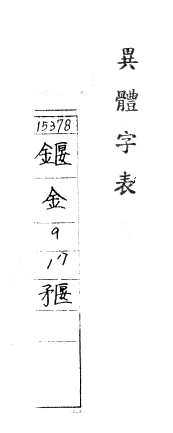 異體字表
15378
鍡
金
9
17